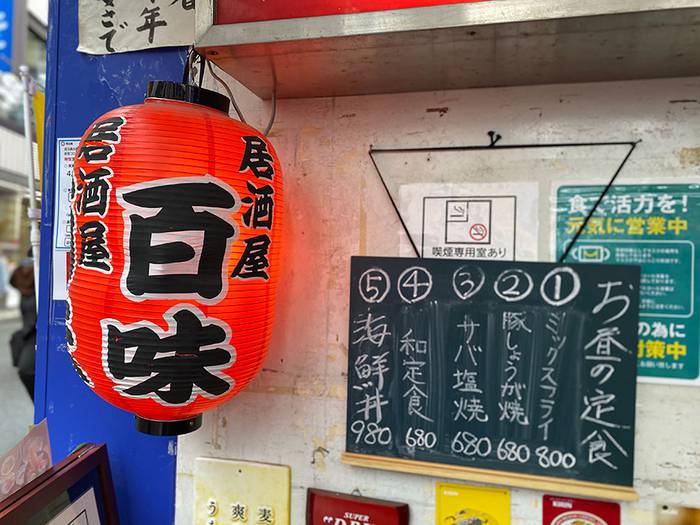 年
さで
居酒屋
百味
居酒屋
喫煙専用室あり
食で活力を！
元気に営業中
の為に
対策中
お昼の定食
① ミックスフライ 800
② 豚しょうが焼 680
③ サバ塩焼 680
④ 和定食 680
⑤ 海鮮丼 980
麦
爽
SUPER